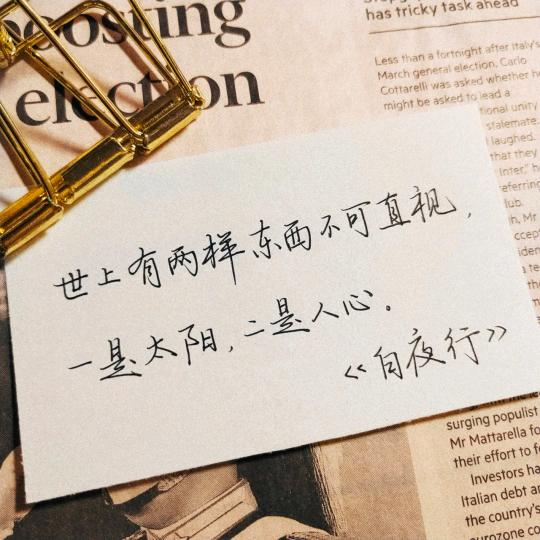 boosting
election
has tricky task ahead
Less than a fortnight after Italy's
March general election, Carlo
Cottarelli was asked whether he
might be asked to lead a
tional unity
stalemate.
laughed.
that they
Inter,” h
eferring
lub.
h, Mr
世上有两样东西不可直视，
一是太阳，二是人心。
《白夜行》
surging populist
Mr Mattarella fo
their effort to f
Investors ha
Italian debt a
the country's
eurozone co